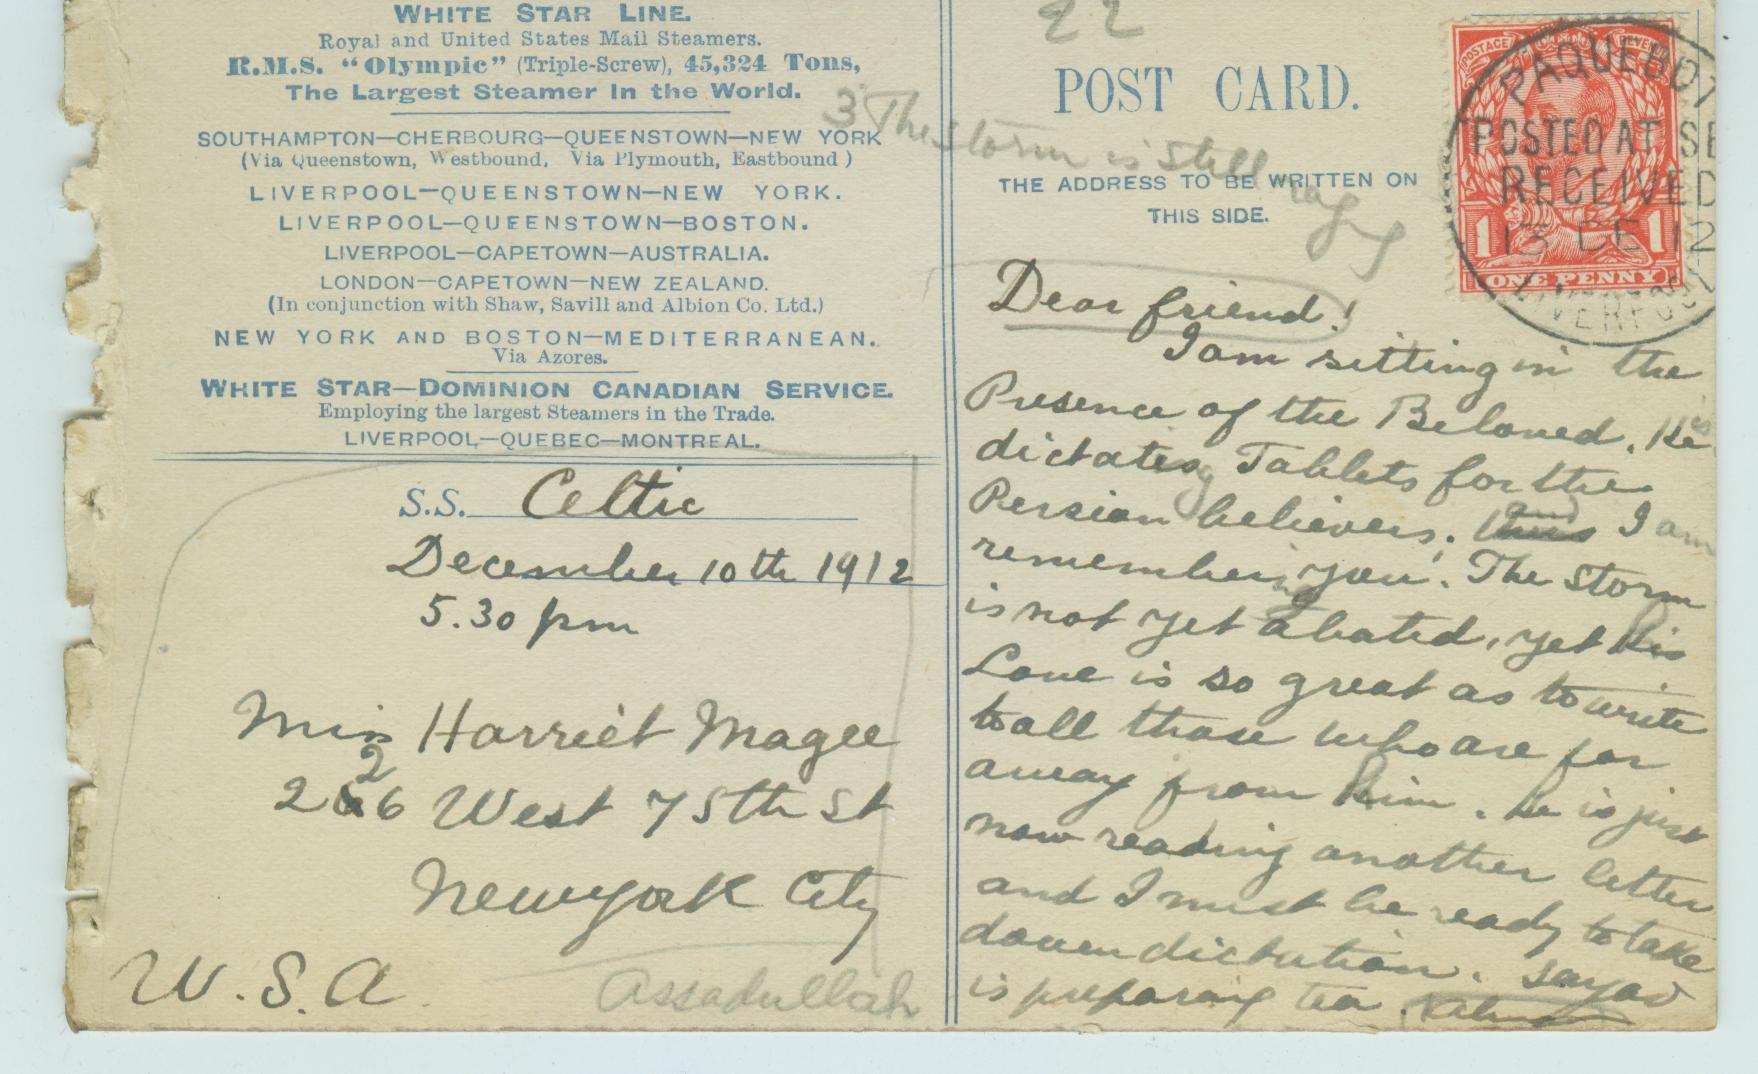 WHITE STAR LINE.
Royal and United States Mail Steamers.
R.M.S. “Olympic” (Triple-Screw), 45,324 Tons,
The Largest Steamer in the World.
SOUTHAMPTON—CHERBOURG—QUEENSTOWN—NEW YORK
(Via Queenstown, Westbound, Via Plymouth, Eastbound)
LIVERPOOL—QUEENSTOWN—NEW YORK.
LIVERPOOL—QUEENSTOWN—BOSTON.
LIVERPOOL—CAPETOWN—AUSTRALIA.
LONDON—CAPETOWN—NEW ZEALAND.
(In conjunction with Shaw, Savill and Albion Co. Ltd.)
NEW YORK AND BOSTON—MEDITERRANEAN.
Via Azores.
WHITE STAR—DOMINION CANADIAN SERVICE.
Employing the largest Steamers in the Trade.
LIVERPOOL—QUEBEC—MONTREAL.
S.S. Celtic
December 10th 1912
5.30 pm
Miss Harriet Magee
2
266 West 75th St
Newyork City
U.S.A
Assadullah
22
POST CARD.
3 The storm is still raging
THE ADDRESS TO BE WRITTEN ON
THIS SIDE.
POSTAGE REVENUE
1 1
ONE PENNY
PAQUEBOT
POSTED AT SE
RECEIVED
13 DE 12
LIVERPOOL
Dear friend!
I am sitting in the
Presence of the Beloved. He is
dictating Tablets for the
Persian believers. and I am
remembering you. The storm
is not yet abated, yet His
Love is so great as to write
to all those who are far
away from Him. He is just
now reading another letter
and I must be ready to take
down dictation. Sayad
is preparing tea.